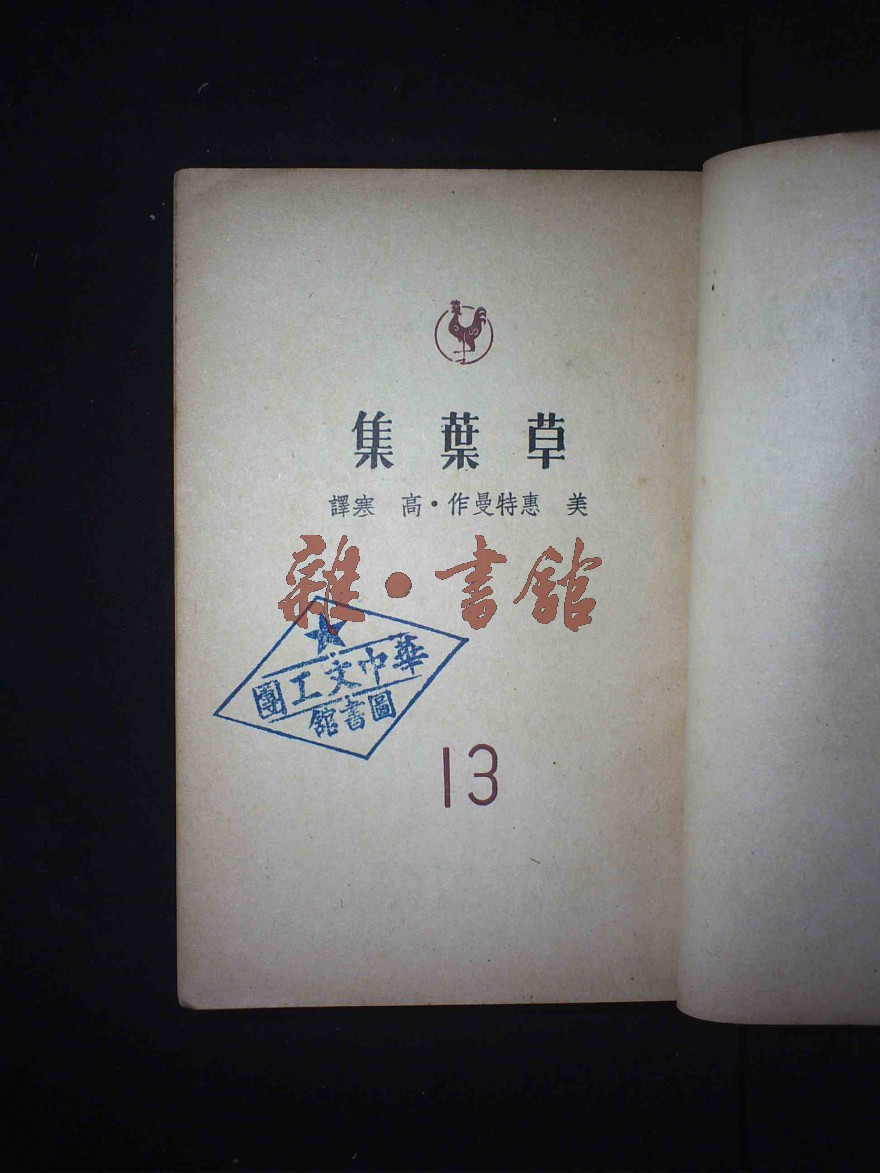 草葉集
美 惠特曼作・高 寒譯
雜・書館
華中文工團
圖書館
13